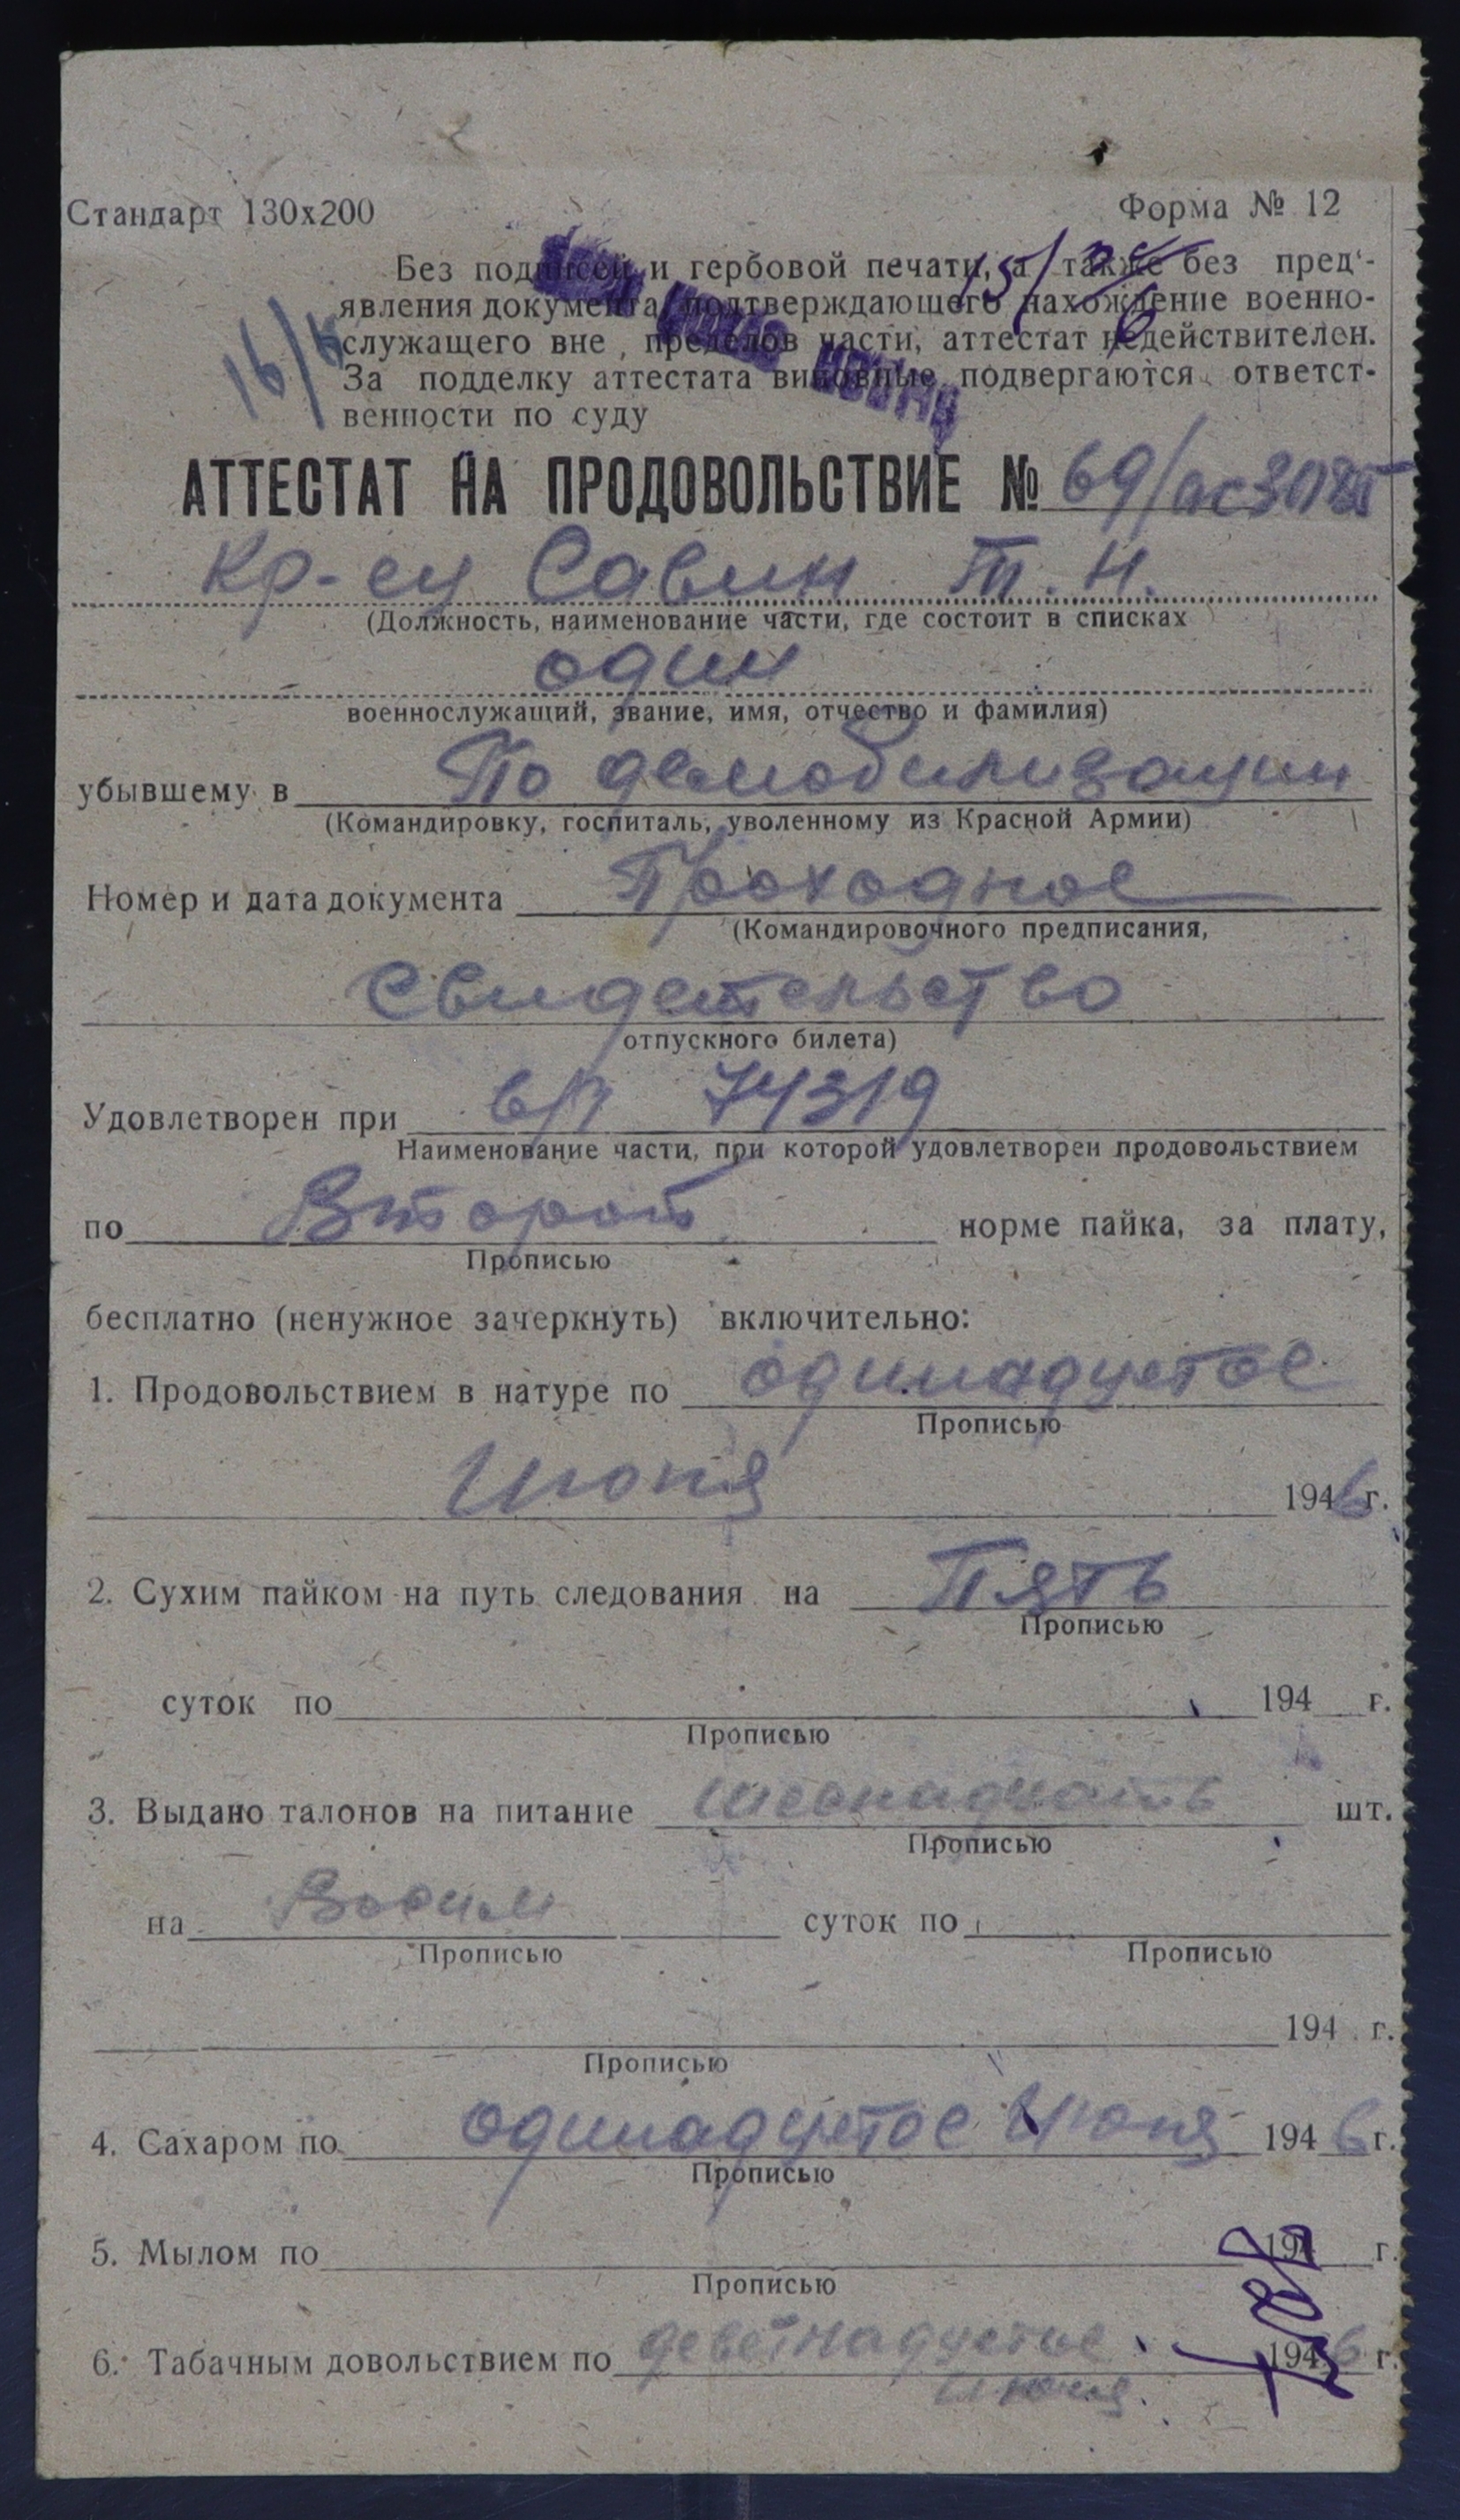 Стандарт 130х200
Форма № 12
Без подписей и гербовой печати, а также без пред'-
явления документа, подтверждающего нахождение военно-
служащего вне пределов части, аттестат недействителен.
За подделку аттестата виновные подвергаются ответст-
венности по суду
16/
15/
АТТЕСТАТ НА ПРОДОВОЛЬСТВИЕ № 69/
Кр-ец Савин Т. Н.
(Должность, наименование части, где состоит в списках
один
военнослужащий, звание, имя, отчество и фамилия)
убывшему в По демобилизации
(Командировку, госпиталь, уволенному из Красной Армии)
Номер и дата документа Проходное
(Командировочного предписания,
свидетельство
отпускного билета)
Удовлетворен при в/ч 74319
Наименование части, при которой удовлетворен продовольствием
по Второй норме пайка, за плату,
Прописью
бесплатно (ненужное зачеркнуть) включительно:
1. Продовольствием в натуре по одинадцетое
Прописью
Июня 1946 г.
2. Сухим пайком на путь следования на Пять
Прописью
суток по 194 г.
Прописью
3. Выдано талонов на питание шеснадцать шт.
Прописью
на Восим суток по
Прописью Прописью
194 г.
Прописью
4. Сахаром по одинадцетое Июня 1946 г.
Прописью
5. Мылом по 194 г.
Прописью
6. Табачным довольствием по деветнадцетое 1946 г.
июня